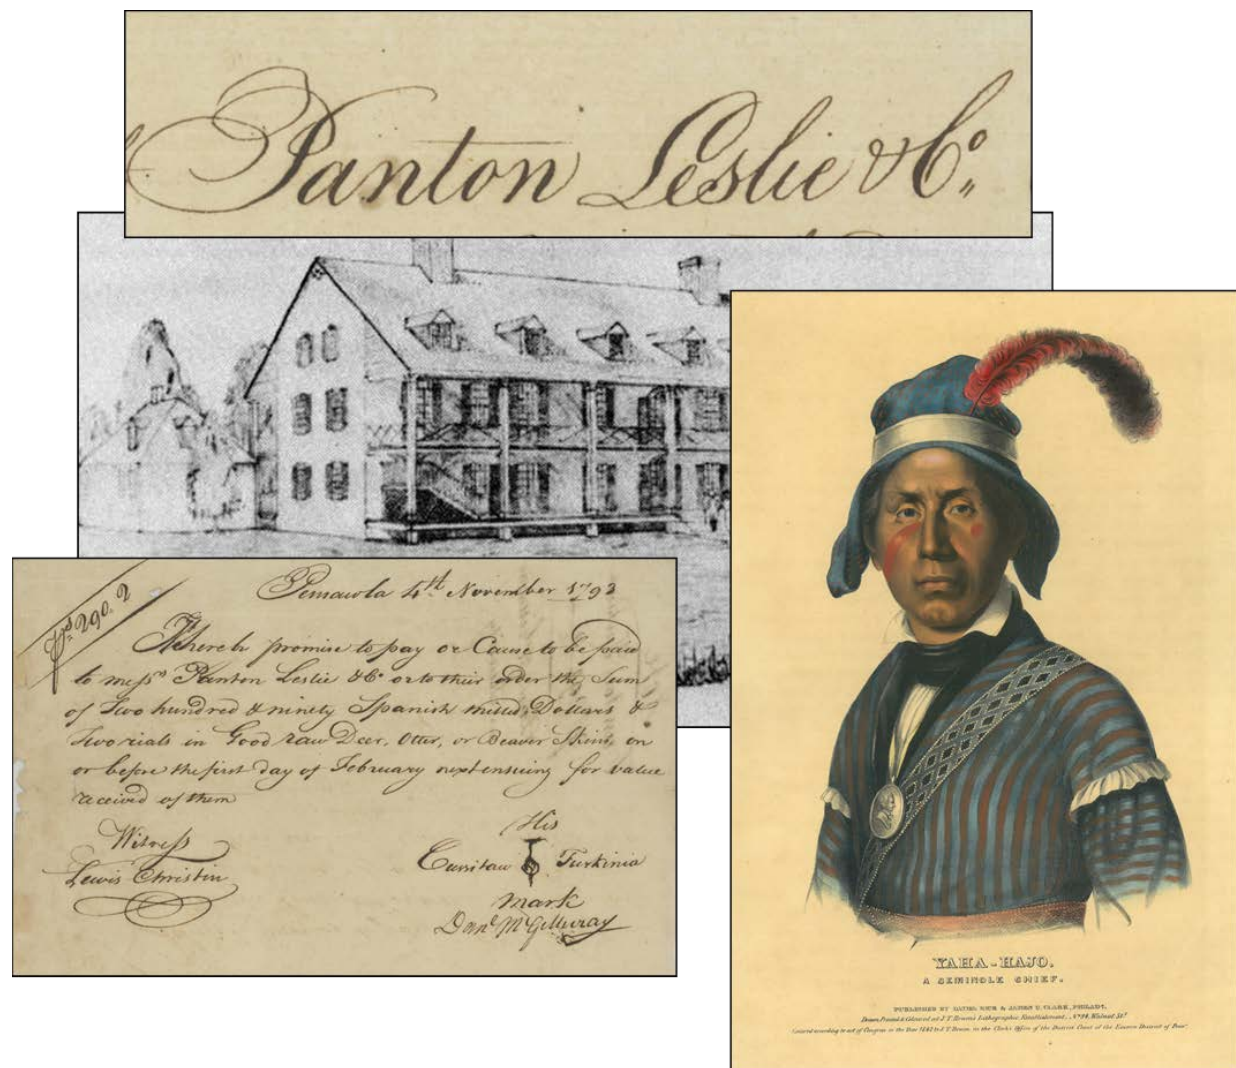 Panton Leslie & Co.
Pensacola 4th November 1792
Ps. 290. 2
I hereby promise to pay or Cause to be paid
to messrs Panton Leslie & Co or to their order the Sum
of Two hundred & ninety Spanish milled Dollars &
Two rials in Good raw Deer, Otter, or Beaver Skins, on
or before the first day of February next ensuing for value
received of them
Witness
Lewis Christin
His
Cussitaw Turkinia
mark
Danl McGillivray
YAHA-HAJO.
A SEMINOLE CHIEF.
PUBLISHED BY DANIEL RICE & JAMES G. CLARK, PHILADA.
Drawn, Printed & Coloured at J. T. Bowen's Lithographic Establishment, No. 94, Walnut St.
Entered according to act of Congress in the Year 1842 by J. T. Bowen, in the Clerks Office of the District Court of the Eastern District of Penna.